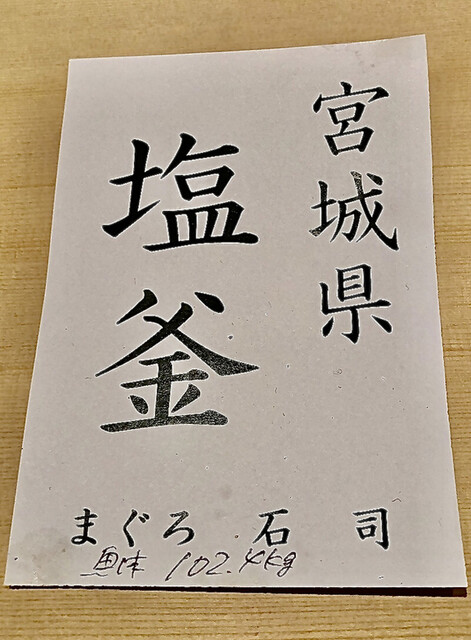 宮城県
塩釜
まぐろ 石司
魚体 102.4kg